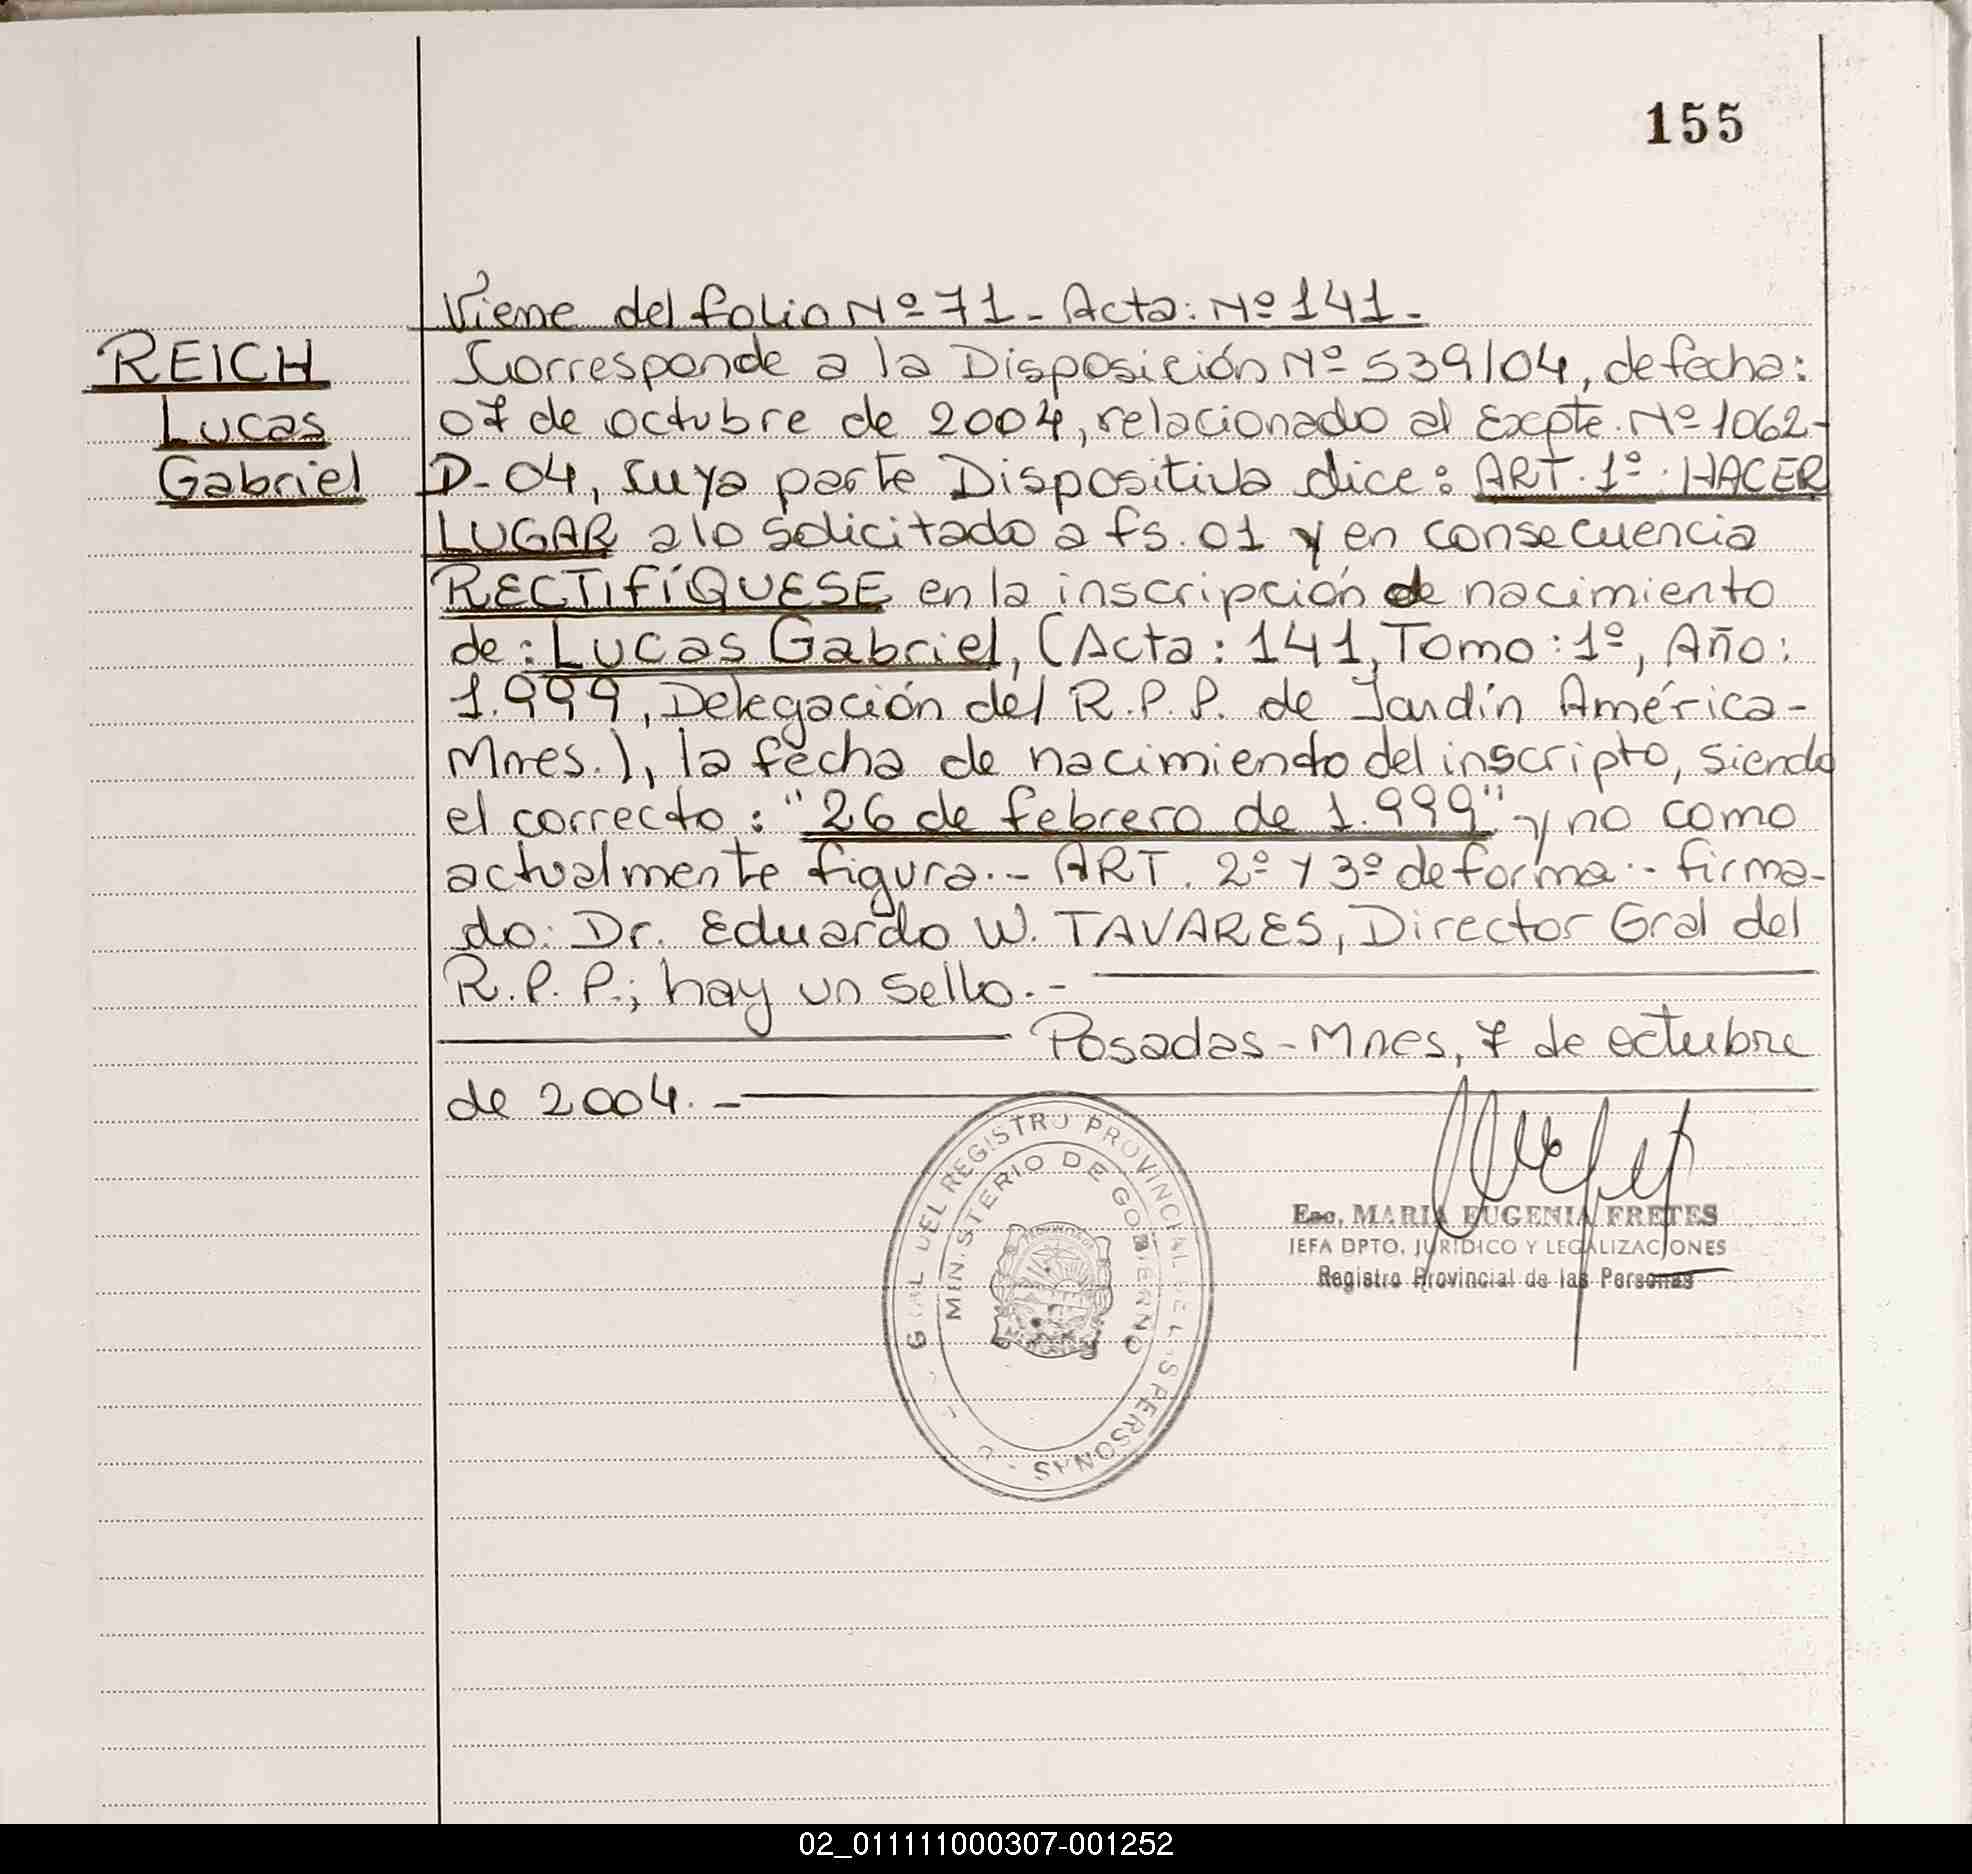 155
Viene del folio Nº 71 - Acta: Nº 141 -
REICH
Lucas
Gabriel
Corresponde a la Disposición Nº 539/04, de fecha:
07 de octubre de 2004, relacionado al Expte. Nº 1062-
D-04, cuya parte Dispositiva dice: ART. 1º. HACER
LUGAR a lo solicitado a fs. 01 y en consecuencia
RECTIFÍQUESE en la inscripción de nacimiento
de: Lucas Gabriel, (Acta: 141, Tomo: 1º, Año:
1.999, Delegación del R.P.P. de Jardín América-
Mnes.), la fecha de nacimiento del inscripto, siendo
el correcto: "26 de febrero de 1.999" y no como
actualmente figura.- ART. 2º y 3º de forma.- firma-
do: Dr. Eduardo W. TAVARES, Director Gral del
R.P.P.; hay un sello.-
Posadas - Mnes, 7 de octubre
de 2004. -
GRAL DEL REGISTRO PROVINCIAL DE LAS PERSONAS
MINISTERIO DE GOBIERNO
Esc. MARIA EUGENIA FRETES
JEFA DPTO. JURIDICO Y LEGALIZACIONES
Registro Provincial de las Personas
02_011111000307-001252